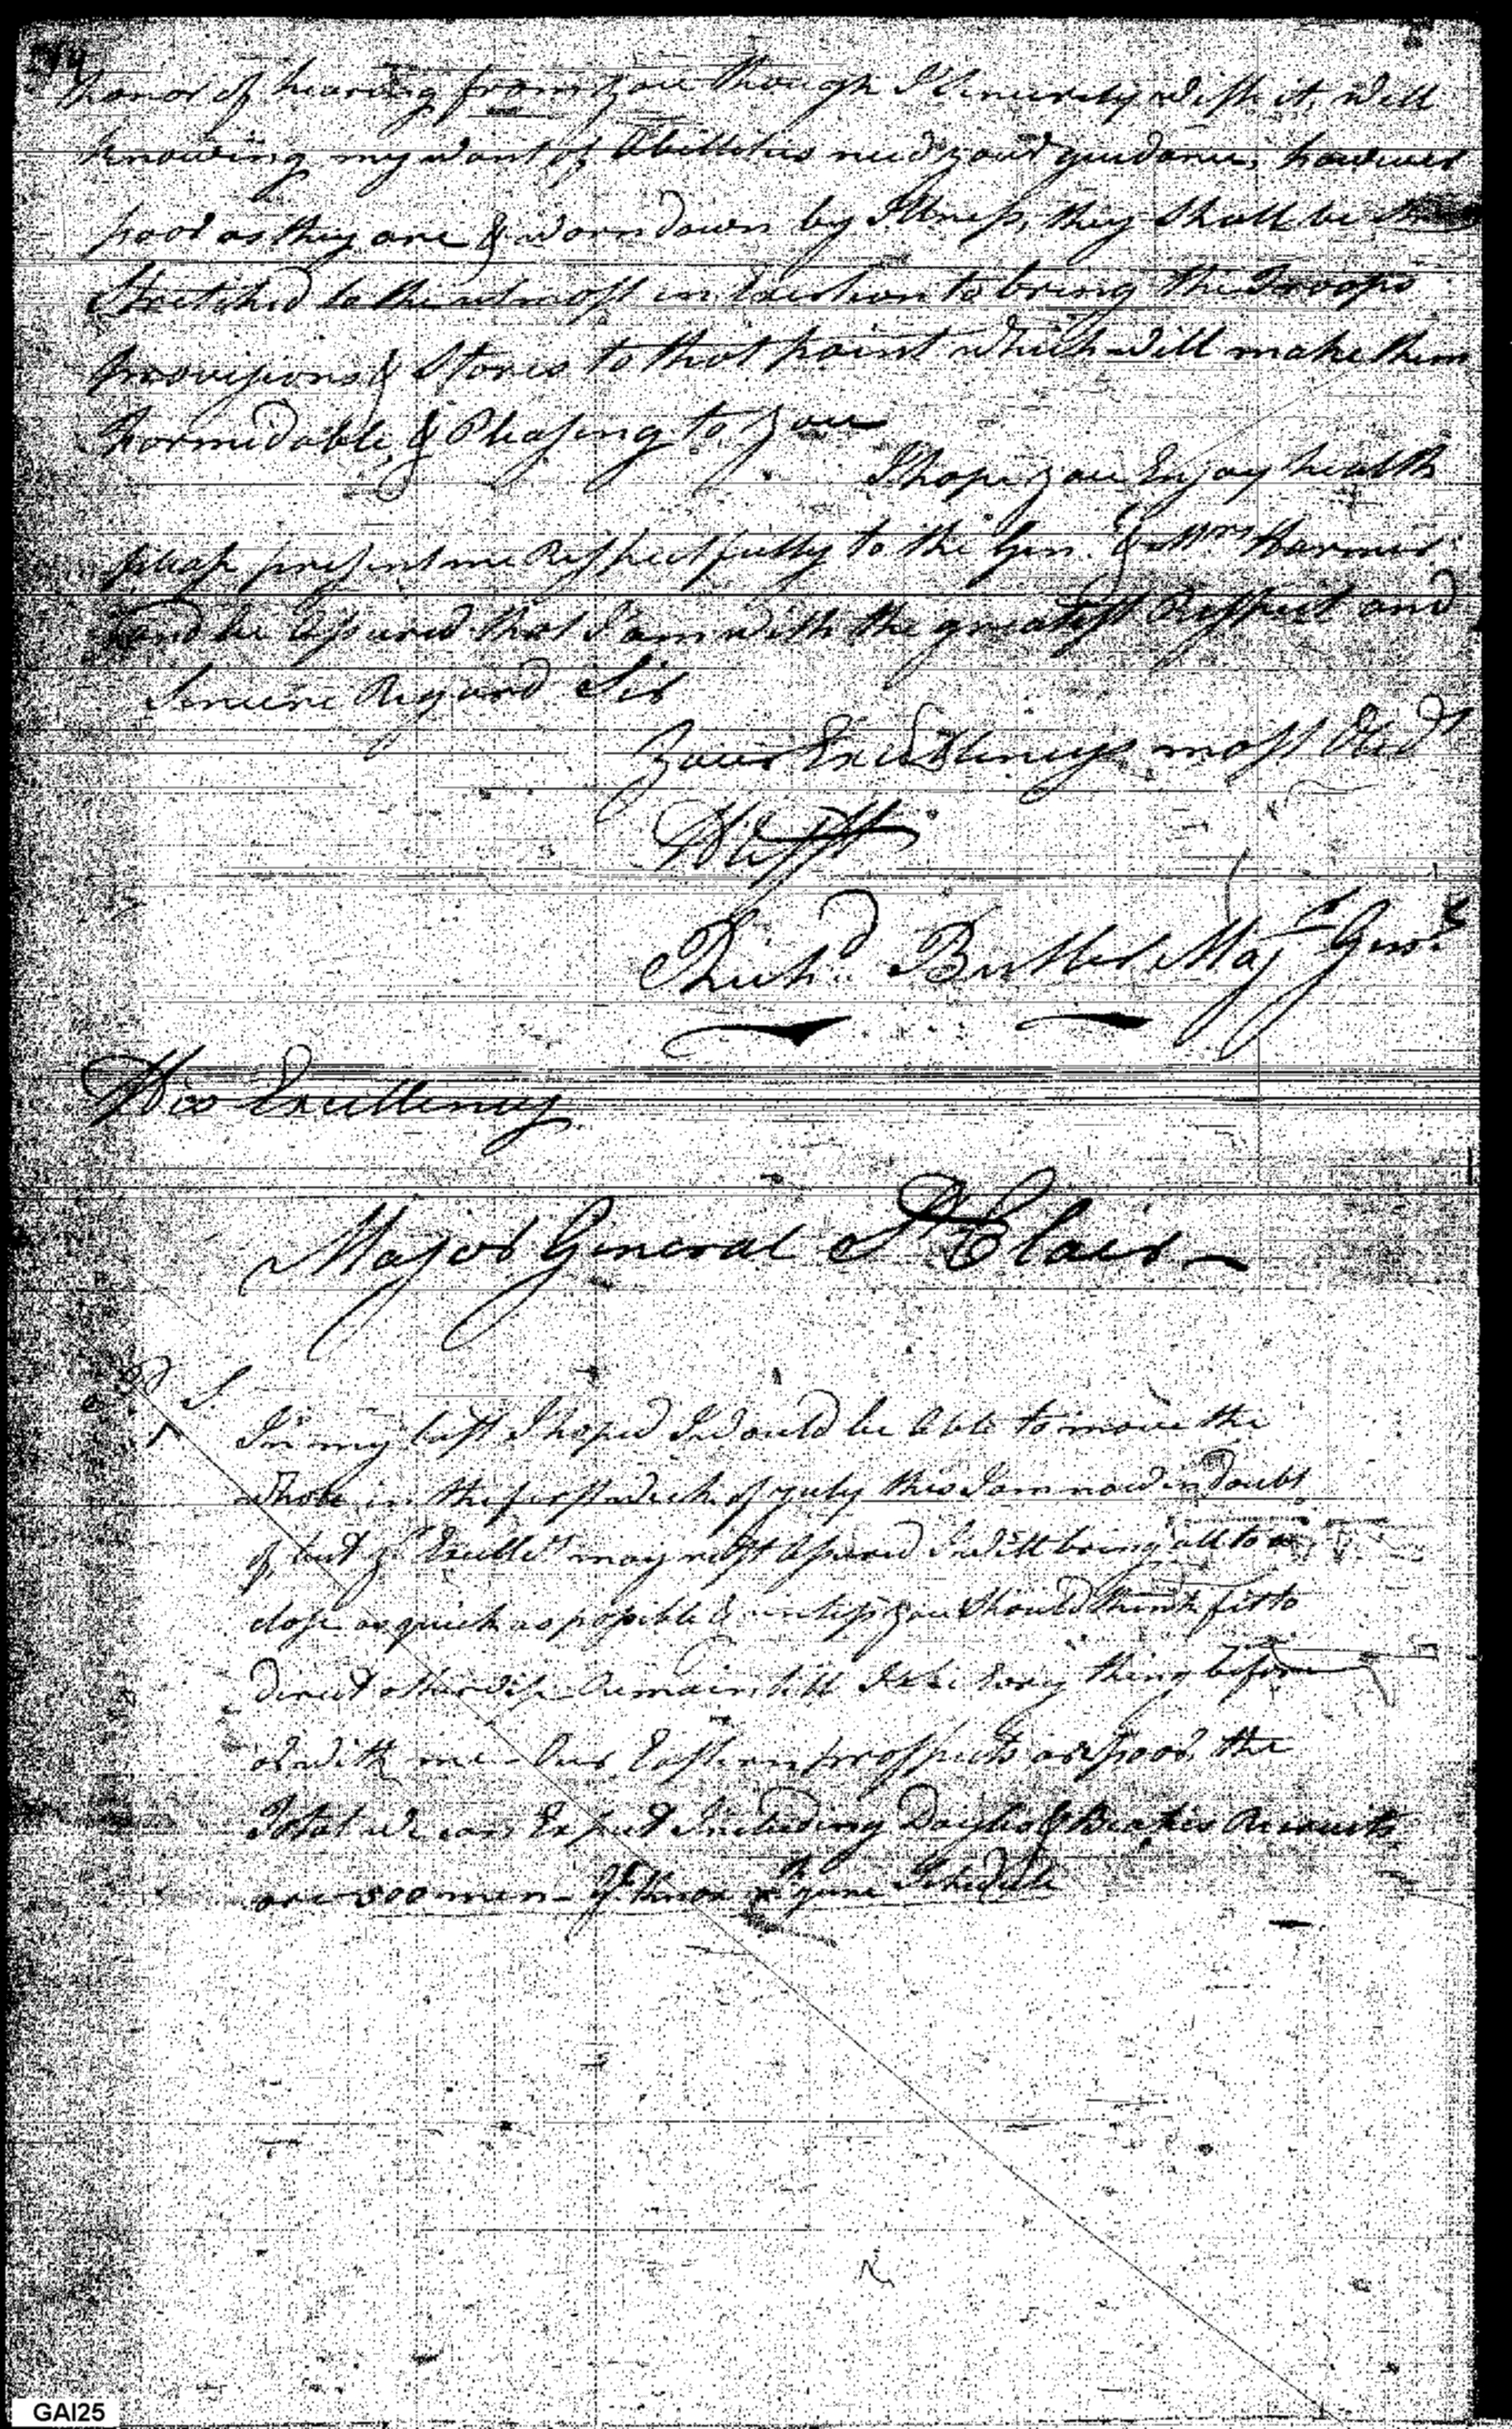 honor of hearing from you though I Sincerely wish it, well
knowing my want of Abillities need your guidance, however
poor as they are & worn down by Illness, they shall be
Stretched to the utmost in Exertion to bring the Troops
provisions & Stores to that point which will make them
formidable, & Pleasing to you
I hope you Enjoy health
please present me Respectfully to the Gen. & Mrs Harmer
and be Assured that I am with the greatest Respect and
Sincere Regard Sir
Your Excellencys most Obedt
Richd. Butler Majr Genl
His Excellency
Major General St Clair
P S.
In my last I hoped I would be Able to move the
whole in the first week of July this I am now in doubt
of, but yr Excellcy may rest Assured I will bring all to a
close as quick as possible & unless you should think fit to
direct otherwise Remain till I see Every thing before
or with me - Our Eastern prospects are poor, the
Total we can Expect Including Doyles & Recruits
are 500 men - Knox June
GAI25